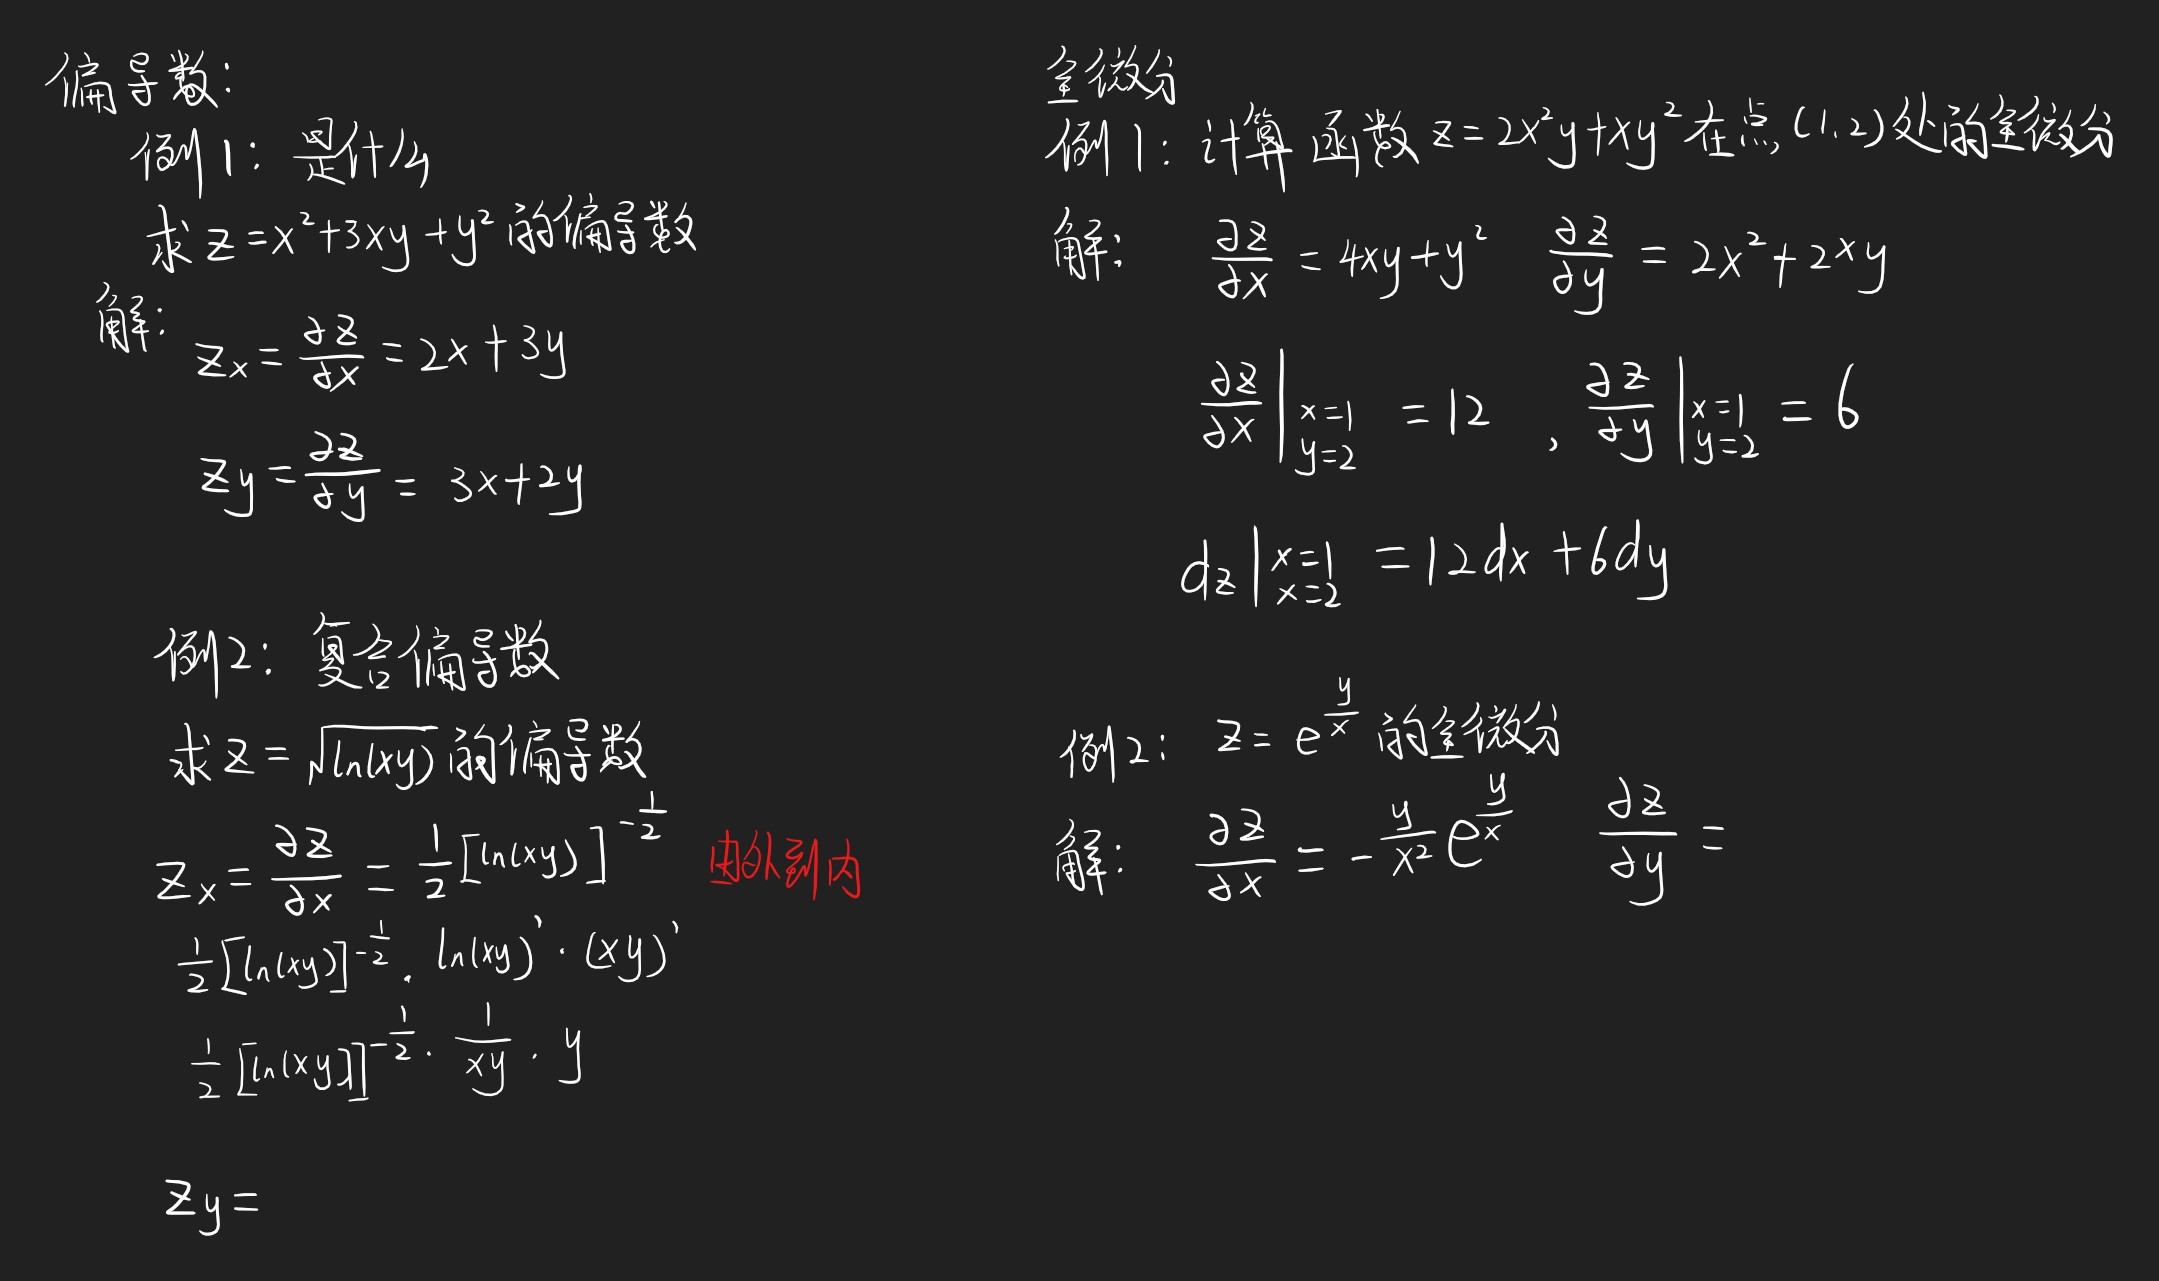 偏导数:
例1: 是什么
求 z=x²+3xy+y² 的偏导数
解:
Zx = ∂z/∂x = 2x+3y
Zy = ∂z/∂y = 3x+2y
例2: 复合偏导数
求 z = √ln(xy) 的偏导数
Zx = ∂z/∂x = 1/2 [ln(xy)]^(-1/2) 由外到内
1/2 [ln(xy)]^(-1/2) · ln(xy)' · (xy)'
1/2 [ln(xy)]^(-1/2) · 1/xy · y
Zy =
全微分
例1: 计算函数 z=2x²y+xy² 在点(1,2)处的全微分
解: ∂z/∂x = 4xy+y² ∂z/∂y = 2x²+2xy
∂z/∂x | x=1 y=2 = 12 , ∂z/∂y | x=1 y=2 = 6
dz | x=1 x=2 = 12dx + 6dy
例2: z = e^(y/x) 的全微分
解: ∂z/∂x = - y/x² e^(y/x) ∂z/∂y =